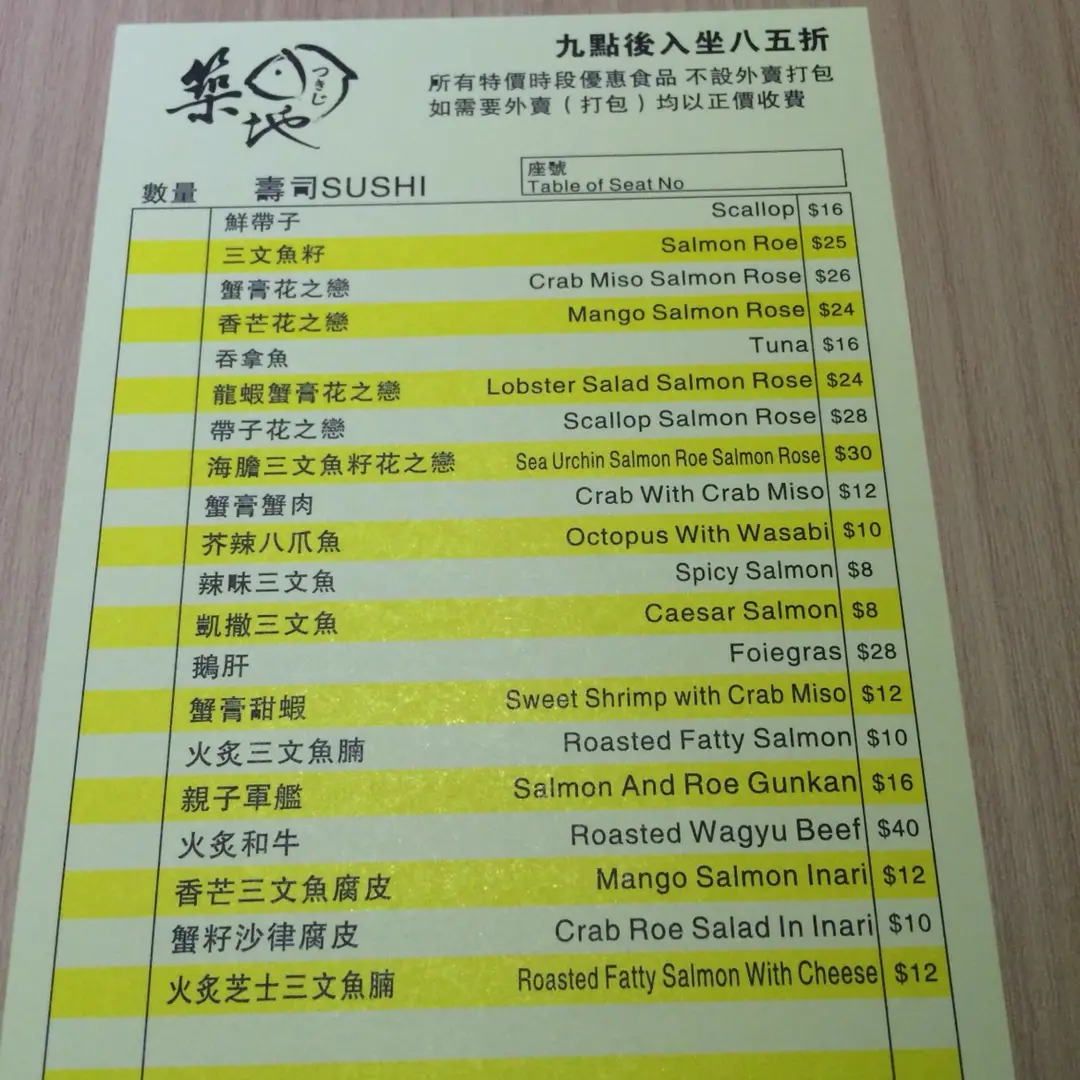 築地
つきじ
九點後入坐八五折
所有特價時段優惠食品 不設外賣打包
如需要外賣（打包）均以正價收費
座號
Table of Seat No
數量 壽司SUSHI
鮮帶子 Scallop $16
三文魚籽 Salmon Roe $25
蟹膏花之戀 Crab Miso Salmon Rose $26
香芒花之戀 Mango Salmon Rose $24
吞拿魚 Tuna $16
龍蝦蟹膏花之戀 Lobster Salad Salmon Rose $24
帶子花之戀 Scallop Salmon Rose $28
海膽三文魚籽花之戀 Sea Urchin Salmon Roe Salmon Rose $30
蟹膏蟹肉 Crab With Crab Miso $12
芥辣八爪魚 Octopus With Wasabi $10
辣味三文魚 Spicy Salmon $8
凱撒三文魚 Caesar Salmon $8
鵝肝 Foiegras $28
蟹膏甜蝦 Sweet Shrimp with Crab Miso $12
火炙三文魚腩 Roasted Fatty Salmon $10
親子軍艦 Salmon And Roe Gunkan $16
火炙和牛 Roasted Wagyu Beef $40
香芒三文魚腐皮 Mango Salmon Inari $12
蟹籽沙律腐皮 Crab Roe Salad In Inari $10
火炙芝士三文魚腩 Roasted Fatty Salmon With Cheese $12